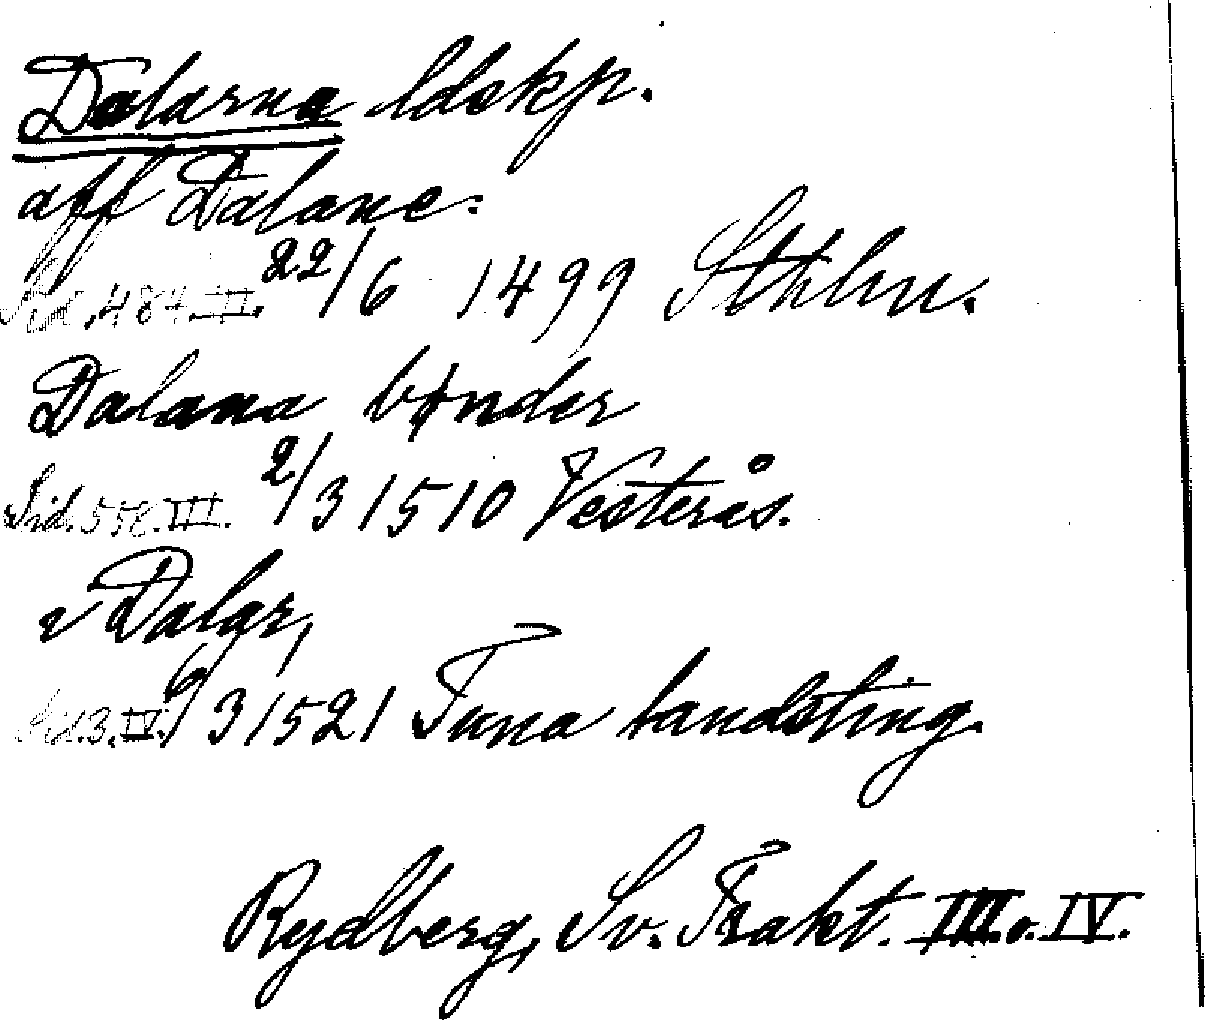 Dalarna ldskp.
aff Dalane:
Sid. 484. III. 22/6 1499 Sthlm.
Dalana bønder
Sid. 558. III. 2/3 1510 Vesterås.
i Dalar,
Sid. 3. IV. 6/3 1521 Tuna landsting.
Rydberg, Sv. Trakt. III. o. IV.